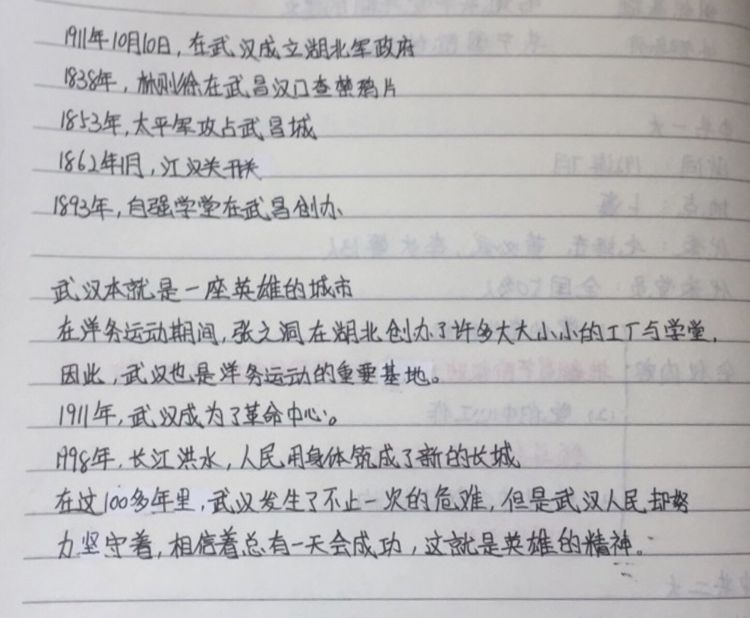 1911年10月10日,在武汉成立湖北军政府
1838年,林则徐在武昌汉口查禁鸦片
1853年,太平军攻占武昌城
1862年1月,江汉关开关
1893年,自强学堂在武昌创办
武汉本就是一座英雄的城市
在洋务运动期间,张之洞在湖北创办了许多大大小小的工厂与学堂,
因此,武汉也是洋务运动的重要基地。
1911年,武汉成为了革命中心。
1998年,长江洪水,人民用身体筑成了新的长城
在这100多年里,武汉发生了不止一次的危难,但是武汉人民却努
力坚守着,相信着总有一天会成功,这就是英雄的精神。